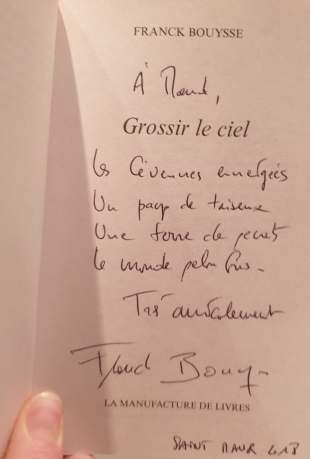 FRANCK BOUYSSE
À Maud,
Grossir le ciel
Les Cévennes enneigées
Un pays de taiseux
Une terre de secrets
Le monde
Très amicalement
Franck Bouysse
LA MANUFACTURE DE LIVRES
SAINT MAUR